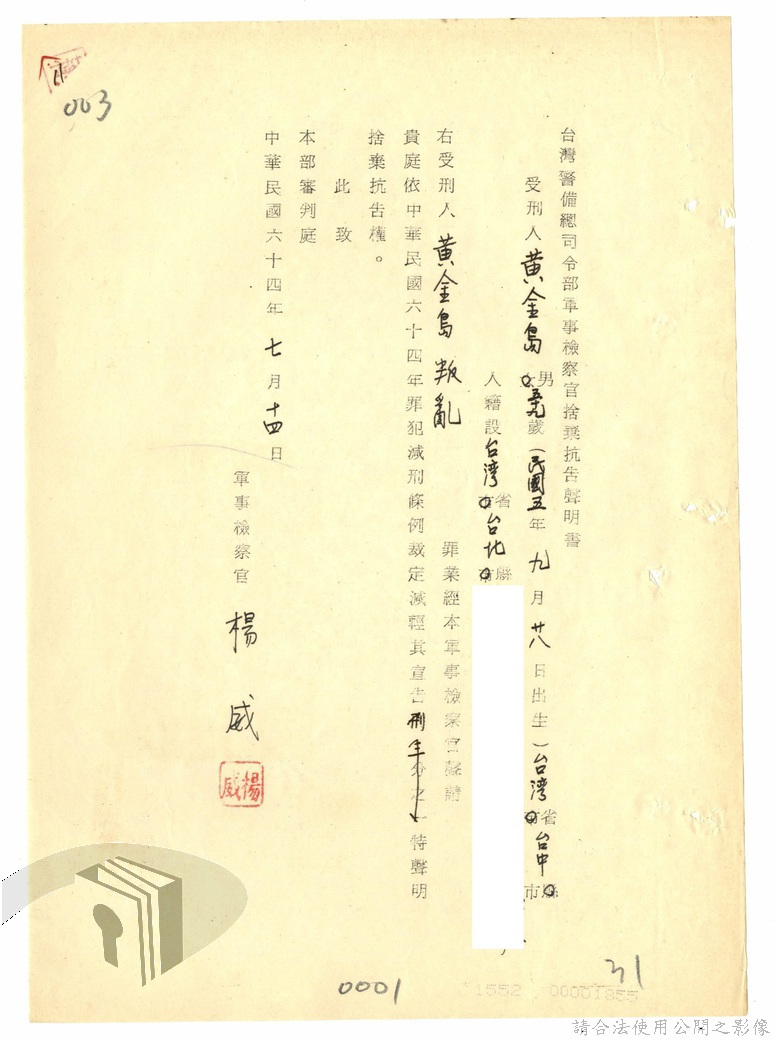 台灣警備總司令部軍事檢察官捨棄抗告聲明書
受刑人黃金島男女五九歲(民國五年九月廿八日出生)台灣省市台中縣市
人籍設台灣省市台北縣市
右受刑人黃金島叛亂罪業經本軍事檢察官聲請
貴庭依中華民國六十四年罪犯減刑條例裁定減輕其宣告刑 特聲明
捨棄抗告權。
此致
本部審判庭
中華民國六十四年七月十四日
軍事檢察官楊威
楊威
003
11
0001
31
1552 00001855
請合法使用公開之影像